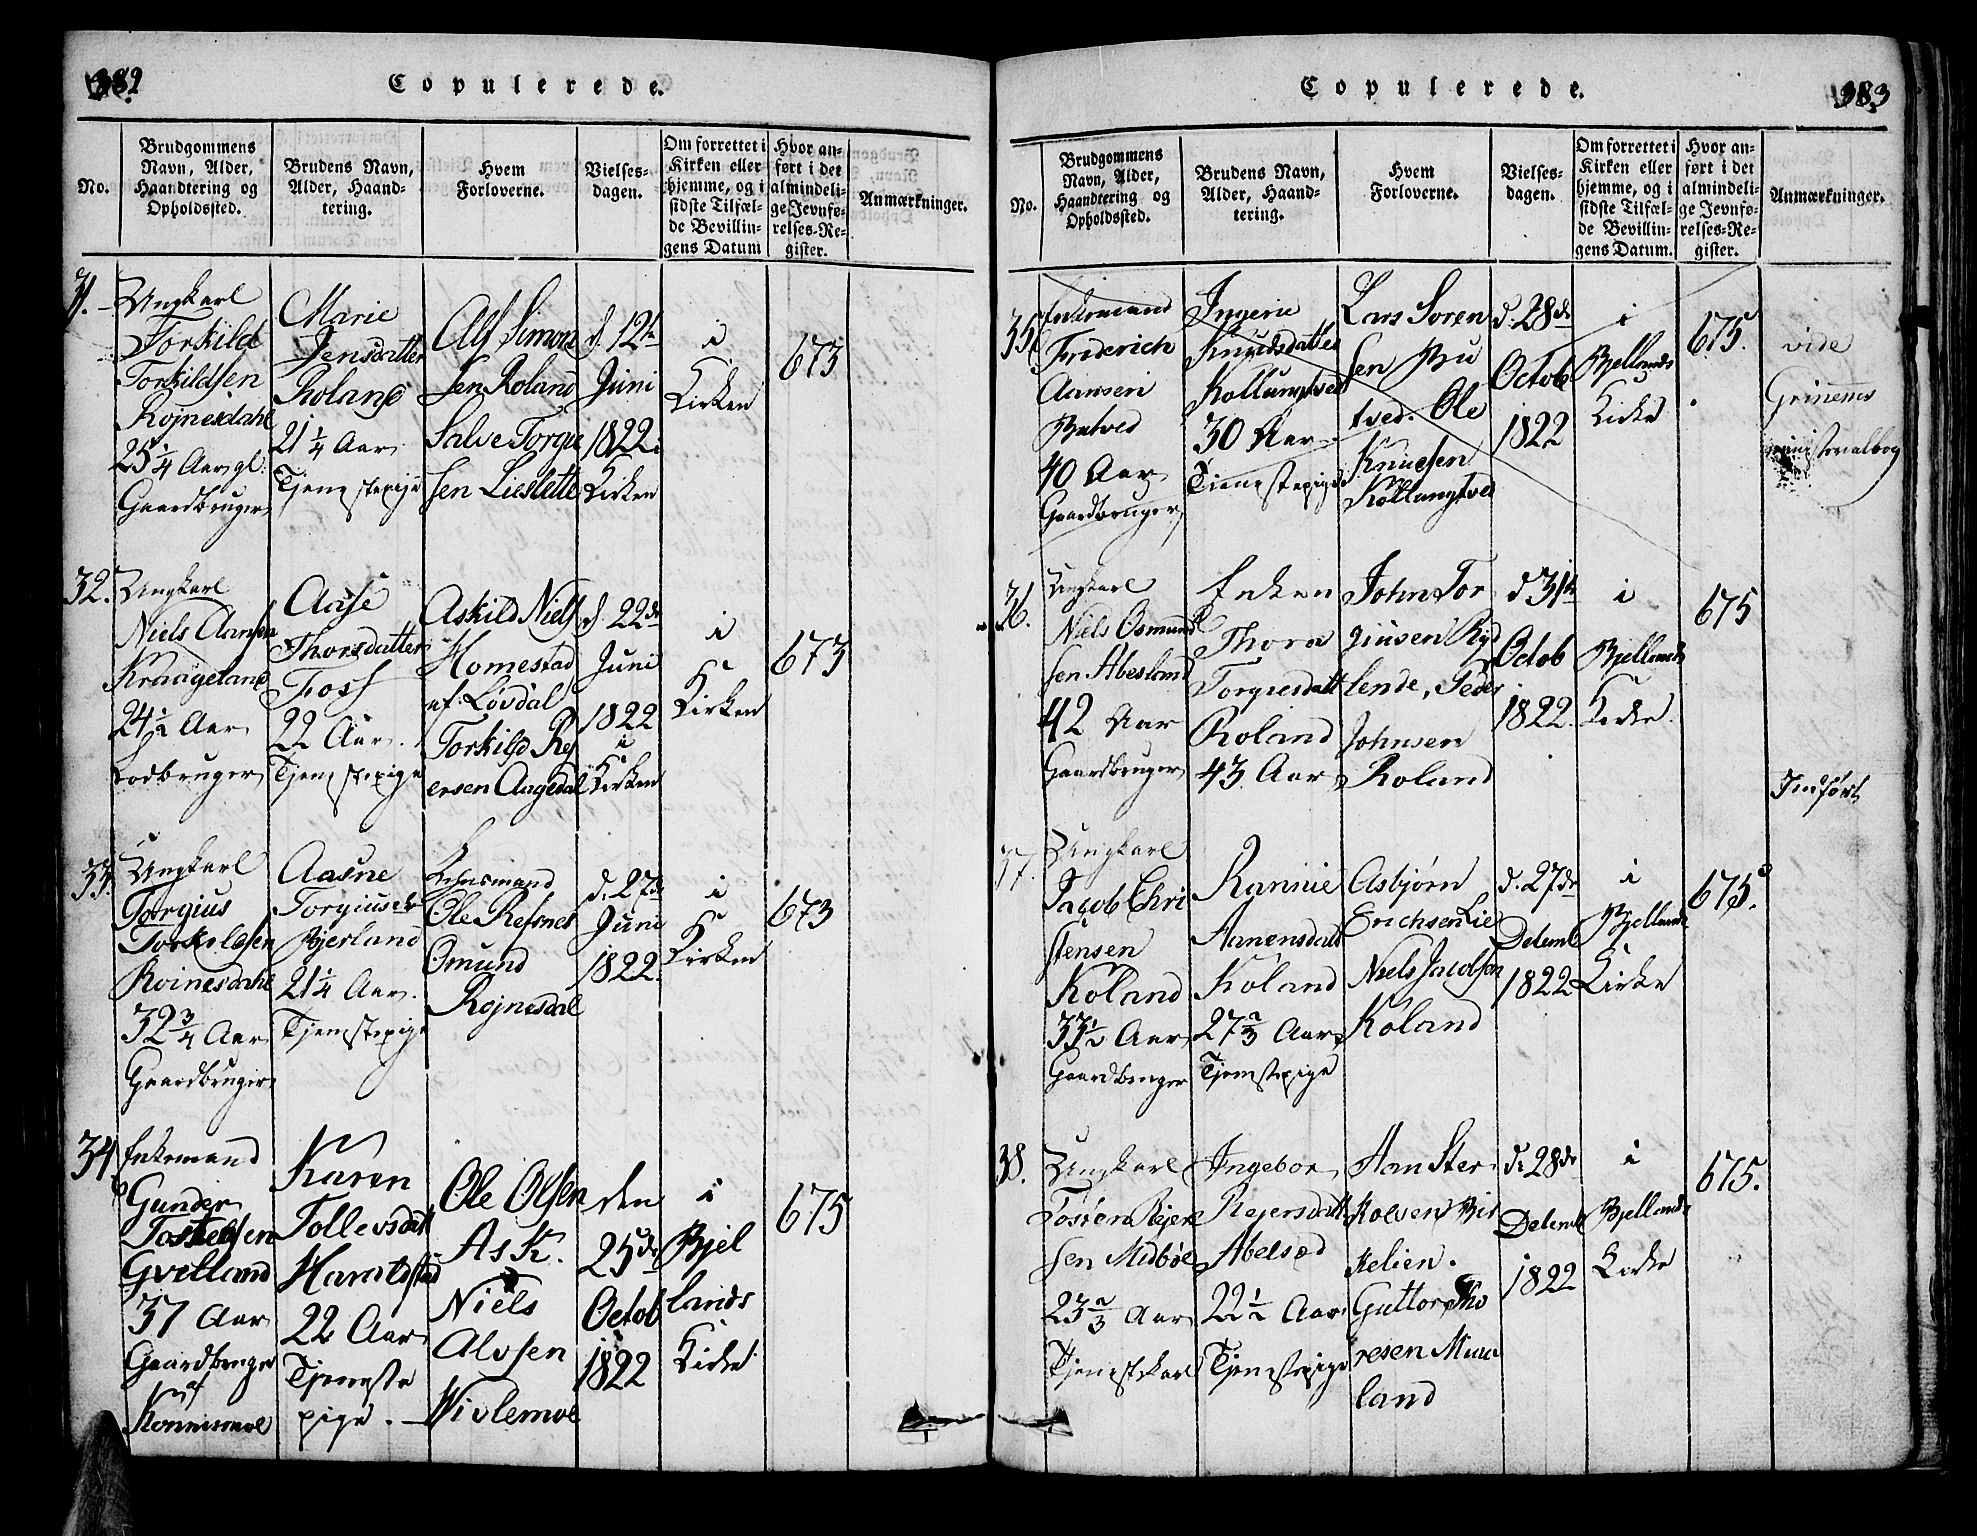 382
Copulerede.
No.
Brudgommens
Navn, Alder,
Haandtering og
Opholdssted.
Brudens Navn,
Alder, Haand-
tering.
Hvem
Forloverne.
Vielses-
dagen.
Om forrettet i
Kirken eller
hjemme, og i
sidste Tilfæl-
de Bevillin-
gens Datum
Hvor an-
ført i det
almindeli-
ge Jevnfø-
relses-Re-
gister.
Anmærkninger.
31.
Ungkarl
Torkild
Torkildsen
Rojnesdahl
25 1/4 Aar gl.
Gaardbruger
Marie
Jensdatter
Roland
21 1/4 Aar
Tjenestepige
Alf Simon
sen Roland
Salve Torgie
sen Lieslette
d. 12te
Juni
1822.
Kirken
i
Kirken
673
32.
Ungkarl
Niels Aansen
Kraageland
24 1/2 Aar
Aase
Thorsdatter
Foss
22 Aar.
Tjenestepige
Askild Niels
Homestad
af Løvdal
Torkild Rej
ersen Aagedal
d. 22de
Juni
1822
i
Kirken
i
Kirken
673
33.
Ungkarl
Torgius
Torkildsen
Roinesdahl
32 3/4 Aar
Gaardbruger
Aasne
Torgiusdr
Bjerland
21 1/4 Aar.
Tjenestepige
Lehnsmand
Ole Refsnes
Omund
Rojnesdal
d. 27de
Juni
1822.
i
Kirken
673
34
Enkemand
Gunder
Tostelsen
Qvelland
37 Aar
Gaardbruger
paa
Konnismoe
Karen
Tollevsdatt
Haraldstad
22 Aar
Tjeneste
pige.
Ole Olsen
Ask.
Niels
Alvsen
Wivlemoe
den
25de
Octob
1822
i
Bjel
lands
Kirke
675
383
Copulerede.
No.
Brudgommens
Navn, Alder,
Haandtering og
Opholdssted.
Brudens Navn,
Alder, Haand-
tering.
Hvem
Forloverne.
Vielses-
dagen.
Om forrettet i
Kirken eller
hjemme, og i
sidste Tilfæl-
de Bevillin-
gens Datum.
Hvor an-
ført i det
almindeli-
ge Jevnfø-
relses-Re-
gister.
Anmærkninger.
35.
Enkemand
Friderich
Aansen
Butved
40 Aar
Gaardbruger
Ingerie
Knudsdatter
Kollungtved
30 Aar
Tienestepige
Lars Soren
sen Bu
tved. Ole
Knudsen
Kollungtved
d. 28de
Octob
1822
i
Bjellands
Kirke
675.
vide
Grinems
ministerialbog
36.
Ungkarl
Niels Osmund
sen Abesland
42 Aar
Gaardbruger
Enken
Thora
Torgiesdatt
Roland
43 Aar
John Tor
giusen Ryd
lende, Peder
Johnsen
Roland
d 31te
Octob
1822.
i
Bjellands
Kirke.
675
Indført
37.
Ungkarl
Jacob Chri
stensen
Koland
33 1/2 Aar
Gaardbruger
Rannie
Aanensdatt
Koland
27 2/3 Aar
Tjenestepige
Asbjørn
Erichsen Lie
Niels Jacobsen
Koland
d. 27de
Decemb
1822
i
Bjellands
Kirke
675.
38.
Ungkarl
Tosten Rejer
sen Midbøe
23 2/3 Aar
Tjenestekarl
Ingebor
Rejersdatt
Abelsød
22 1/2 Aar
Tjenestepige
Han Ster
kolsen Bir
kelien.
Guttor Tho
resen Mun
land
d. 28de
Decemb
1822
i
Bjellands
Kirke
675.